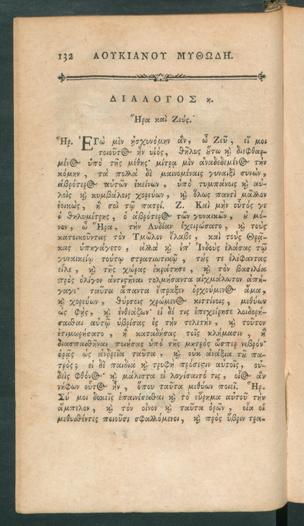 132 ΛΟΥΚΙΑΝΟΥ ΜΥΘΩΔΗ.
ΔΙΑΛΟΓΟΣ η.
Ἥρα καὶ Ζεύς.
Ἥρ. Ἐγὼ μὲν ᾐσχυνόμην ἂν, ὦ Ζεῦ, εἴ μοι
τοιοῦτος ἦν υἱὸς, θῆλυς οὕτω καὶ διεφθαρ-
μένος ὑπὸ τῆς μέθης· μίτρᾳ μὲν ἀναδεδεμένος τὴν
κόμην, τὰ πολλὰ δὲ μαινομέναις γυναιξὶ συνὼν,
ἁβρότερος αὐτῶν ἐκείνων, ὑπὸ τυμπάνοις καὶ αὐ-
λοῖς καὶ κυμβάλοις χορεύων, καὶ ὅλως παντὶ μᾶλλον
ἐοικὼς, ἢ σοὶ τῷ πατρί. Ζ. Καὶ μὴν οὗτός γε
ὁ θηλυμίτρης, ὁ ἁβρότερος τῶν γυναικῶν, οὐ μό-
νον, ὦ Ἥρα, τὴν Λυδίαν ἐχειρώσατο, καὶ τοὺς
κατοικοῦντας τὸν Τμῶλον ἔλαβε, καὶ τοὺς Θρᾷ-
κας ὑπηγάγετο, ἀλλὰ καὶ ἐπ' Ἰνδοὺς ἐλάσας τῷ
γυναικείῳ τούτῳ στρατιωτικῷ, τούς τε ἐλέφαντας
εἷλε, καὶ τῆς χώρας ἐκράτησε, καὶ τὸν βασιλέα
πρὸς ὀλίγον ἀντιστῆναι τολμήσαντα αἰχμάλωτον ἀπή-
γαγε· ταῦτα ἅπαντα ἔπραξεν ὀρχούμενος ἅμα,
καὶ χορεύων, θύρσοις χρώμενος κιττίνοις, μεθύων
ὡς φῂς, καὶ ἐνθεάζων· εἰ δέ τις ἐπεχείρησε λοιδορή-
σασθαι αὐτῷ ὑβρίσας ἐς τὴν τελετὴν, καὶ τοῦτον
ἐτιμωρήσατο, ἢ καταδήσας τοῖς κλήμασιν, ἢ
διασπασθῆναι ποιήσας ὑπὸ τῆς μητρὸς ὥσπερ νεβρόν·
ὁρᾷς ὡς ἀνδρεῖα ταῦτα, καὶ οὐκ ἀνάξια τοῦ πα-
τρός; εἰ δὲ παιδιὰ καὶ τρυφὴ πρόσεστιν αὐτοῖς, οὐ-
δεὶς φθόνος· καὶ μάλιστα εἰ λογίσαιτό τις, οἷος ἂν
νήφων οὗτος ἦν, ὅπου ταῦτα μεθύων ποιεῖ. Ἥρ.
Σύ μοι δοκεῖς ἐπαινέσεσθαι καὶ τὸ εὕρημα αὐτοῦ τὴν
ἄμπελον, καὶ τὸν οἶνον καὶ ταῦτα ὁρῶν, οἷα οἱ
μεθυσθέντες ποιοῦσι σφαλλόμενοι, καὶ πρὸς ὕβριν τρε-